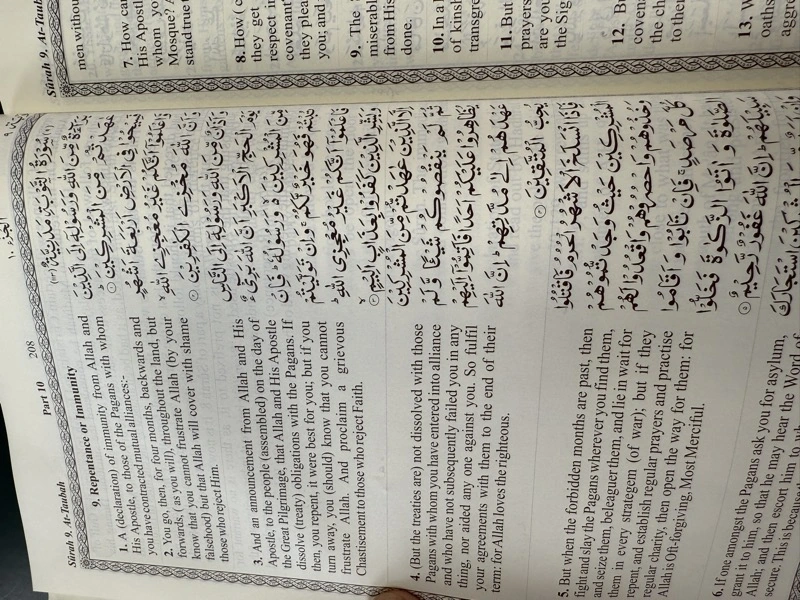 Sûrah 9. At-Taubah
Part 10
208
الجزء ١٠
9. Repentance or Immunity
1. A (declaration) of immunity from Allah and
His Apostle, to those of the Pagans with whom
you have contracted mutual alliances:-
2. You go, then, for four months, backwards and
forwards, ( as you will), throughout the land, but
know that you cannot frustrate Allah (by your
falsehood) but that Allah will cover with shame
those who reject Him.
3. And an announcement from Allah and His
Apostle, to the people (assembled) on the day of
the Great Pilgrimage, that Allah and His Apostle
dissolve (treaty) obligations with the Pagans. If
then, you repent, it were best for you; but if you
turn away, you (should) know that you cannot
frustrate Allah. And proclaim a grievous
Chastisement to those who reject Faith.
4. (But the treaties are) not dissolved with those
Pagans with whom you have entered into alliance
and who have not subsequently failed you in any
thing, nor aided any one against you. So fulfil
your agreements with them to the end of their
term: for Allah loves the righteous.
5. But when the forbidden months are past, then
fight and slay the Pagans wherever you find them,
and seize them, beleaguer them, and lie in wait for
them in every strategem (of war); but if they
repent, and establish regular prayers and practise
regular charity, then open the way for them: for
Allah is Oft-forgiving, Most Merciful.
6. If one amongst the Pagans ask you for asylum,
grant it to him, so that he may hear the Word of
Allah; and then escort him to
secure. This is because
سُوْرَةُ التَّوْبَةِ مَدَنِيَّةٌ
بَرَآءَةٌ مِّنَ اللّٰهِ وَرَسُوْلِهٖٓ اِلَى الَّذِيْنَ
عٰهَدْتُّمْ مِّنَ الْمُشْرِكِيْنَ ①
فَسِيْحُوْا فِى الْاَرْضِ اَرْبَعَةَ اَشْهُرٍ
وَّاعْلَمُوْٓا اَنَّكُمْ غَيْرُ مُعْجِزِى اللّٰهِ ۙ
وَاَنَّ اللّٰهَ مُخْزِى الْكٰفِرِيْنَ ②
وَاَذَانٌ مِّنَ اللّٰهِ وَرَسُوْلِهٖٓ اِلَى النَّاسِ
يَوْمَ الْحَجِّ الْاَكْبَرِ اَنَّ اللّٰهَ بَرِىْٓءٌ
مِّنَ الْمُشْرِكِيْنَ ۙ وَرَسُوْلُهٗ ؕ فَاِنْ
تُبْتُمْ فَهُوَ خَيْرٌ لَّكُمْ ۚ وَاِنْ تَوَلَّيْتُمْ
فَاعْلَمُوْٓا اَنَّكُمْ غَيْرُ مُعْجِزِى اللّٰهِ ؕ
وَبَشِّرِ الَّذِيْنَ كَفَرُوْا بِعَذَابٍ اَلِيْمٍ ③
اِلَّا الَّذِيْنَ عٰهَدْتُّمْ مِّنَ الْمُشْرِكِيْنَ
ثُمَّ لَمْ يَنْقُصُوْكُمْ شَيْئًا وَّلَمْ
يُظَاهِرُوْا عَلَيْكُمْ اَحَدًا فَاَتِمُّوْٓا اِلَيْهِمْ
عَهْدَهُمْ اِلٰى مُدَّتِهِمْ ؕ اِنَّ اللّٰهَ
يُحِبُّ الْمُتَّقِيْنَ ④
فَاِذَا انْسَلَخَ الْاَشْهُرُ الْحُرُمُ فَاقْتُلُوا
الْمُشْرِكِيْنَ حَيْثُ وَجَدْتُّمُوْهُمْ
وَخُذُوْهُمْ وَاحْصُرُوْهُمْ وَاقْعُدُوْا لَهُمْ
كُلَّ مَرْصَدٍ ۚ فَاِنْ تَابُوْا وَاَقَامُوا
الصَّلٰوةَ وَاٰتَوُا الزَّكٰوةَ فَخَلُّوْا
سَبِيْلَهُمْ ؕ اِنَّ اللّٰهَ غَفُوْرٌ رَّحِيْمٌ ⑤
وَاِنْ اَحَدٌ مِّنَ الْمُشْرِكِيْنَ اسْتَجَارَكَ
Sûrah 9. At-Taubah
men without
7. How can
His Apostle
whom yo
Mosque?
stand true
8. How (c
they get
respect in
covenant
they plea
you; and
9. The
miserable
from His
done.
10. In a
of kinsh
transgre
11. But
prayers
are you
the Sig
12. But
covena
the ch
to the
13. W
oaths
aggre